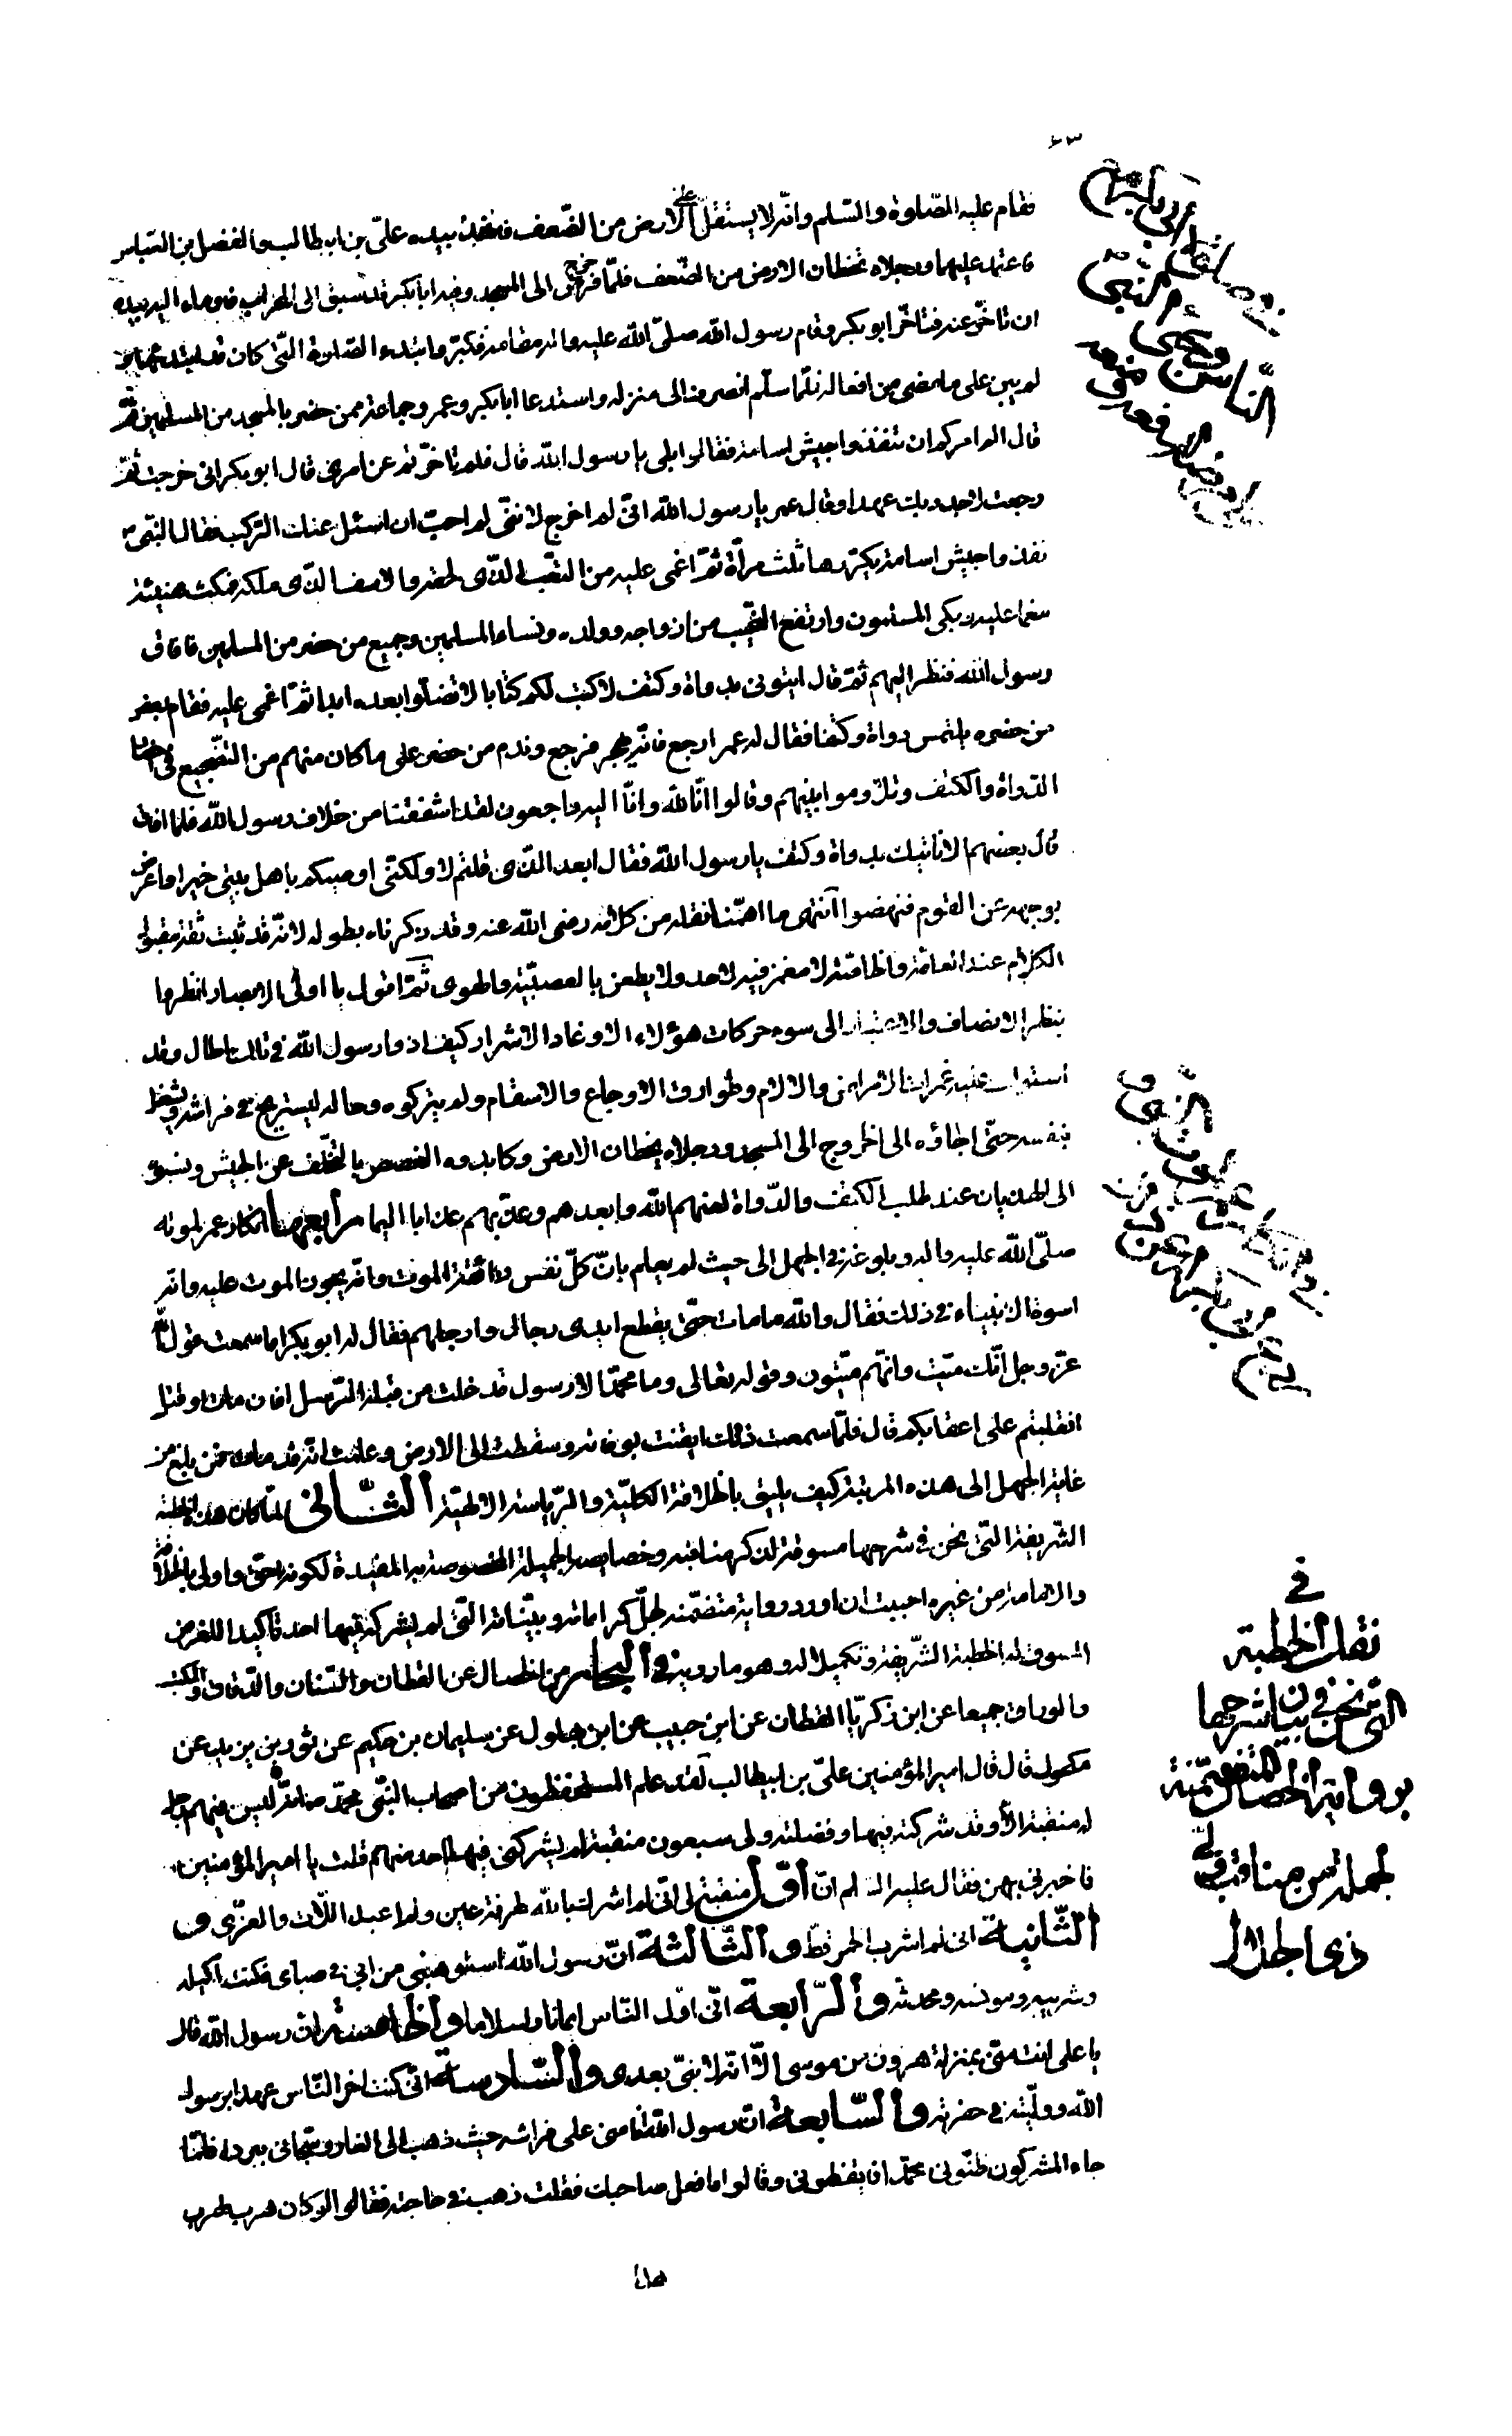 ٦٣
فقام عليه الصّلوة والسّلم وانّه لا يستقلّ على الارض من الضّعف فاخذ بيده علىّ بن ابيطالب والفضل بن العبّاس
فاعتمد عليهما ورجلاه تخطان الارض من الضّعف فلمّا خرج الى المسجد وجد ابابكر قد سبق الى المحراب فاوماء اليه بيده
ان تاخّر عنه فتاخّر ابو بكر وقام رسول الله صلىّ الله عليه واله مقامه فكبّر وابتدء الصّلوة الّتى كان قد ابتدء بها
لم يبن على ما مضى من افعاله فلمّا سلّم انصرف الى منزله واستدعا ابابكر وعمر وجماعة ممن حضر بالمسجد من المسلمين ثمّ
قال الم امركم ان تنفذوا جيش اسامة فقالوا بلى يا رسول الله قال فلم تاخّرتم عن امرى قال ابو بكر انى خرجت ثمّ
رجعت لاجدد بك عهدا وقال عمر يا رسول الله انّى لم اخرج لانّنى لم احبّ ان اسئل عنك الرّكب فقال النّبىّ
نفذوا جيش اسامة يكرّرها ثلث مرّة ثمّ اغمى عليه من التّعب الّذى لحقه والاسف الّذى ملكه فمكث هنيئة
مغما عليه وبكى المسلمون وارتفع النّحيب من ازواجه وولده ونساء المسلمين وجميع من حضر من المسلمين فافاق
رسول الله فنظر اليهم ثمّ قال ايتونى بدواة وكتف لاكتب لكم كتابا لا تضلّوا بعده ابدا ثمّ اغمى عليه فقام بعض
من حضره يلتمس دواة وكتفا فقال له عمر ارجع فانّه يهجر فرجع وندم من حضر على ما كان منهم من التّضجيع فى احضار
الدّواة والكتف وتلاوموا بينهم وقالوا انّا لله وانّا اليه راجعون لقد اشفقنا من خلاف رسول الله فلمّا افاق
قال بعضهم الا ناتيك بدواة وكتف يا رسول الله فقال ابعد الّذى قلتم لا ولكنّى اوصيكم باهل بيتى خيرا واعرض
بوجهه عن القوم فنهضوا انتهى ما اهمّنا نقله من كلامه رضى الله عنه وقد ذكرناه بطوله لانّه قد ثبت ثقة مقبول
الكلام عند العامّة والخاصّة لا مغمز فيه لاحد ولا يطعن بالعصبيّة والهوى ثمّ اقول يا اولى الابصار انظروا
بنظر الانصاف والاعتبار الى سوء حركات هؤلاء الاوغاد الاشرار كيف اذوا رسول الله فى تلك الحال وقد
استولت عليه غمرات الامراض والالام وطوارق الاوجاع والاسقام ولم يتركوه وحاله ليستريح فى فراشه ويشتغل
بنفسه حتّى الجاؤه الى الخروج الى المسجد ورجلاه يخطان الارض وكابدوه الغصص بالتخلّف عن الجيش ونسبوه
الى الهذيان عند طلب الكتف والدّواة لعنهم الله وابعدهم وعذبهم عذابا اليما رابعها انكار عمر لموته
صلىّ الله عليه واله وبلوغه فى الجهل الى حيث لم يعلم بانّ كلّ نفس ذائقة الموت وانّه يجوز الموت عليه وانّه
اسوة الانبياء فى ذلك فقال والله ما مات حتّى يقطع ايدى رجال وارجلهم فقال له ابو بكر اما سمعت قول الله
عزّ وجل انّك ميّت وانّهم ميّتون وقوله تعالى وما محمّد الا رسول قد خلت من قبله الرّسل افان مات او قتل
انقلبتم على اعقابكم قال فلمّا سمعت ذلك ايقنت بوفاته وسقطت الى الارض وعلمت انّه قد مات فمن بلغ من
غاية الجهل الى هذه المرتبة كيف يليق بالخلافة الكليّة والرّياسة الالهيّة الثّانى لمّا كان هذه الخطبة
الشّريفة الّتى نحن فى شرحها مسوقة لذكر مناقبه وخصايصه الجميلة المخصوصة به المفيدة لكونه احقّ واولى بالخلافة
والامامة من غيره احببت ان اورد رواية متضمّنه لجلّ كراماته وبيّناته الّتى لم يشركه فيها احد تاكيدا للغرض
المسوق له الخطبة الشّريفة وتكميلا له وهو ما رويته فى البحار من الخصال عن القطان والسّنان والدّقاق والمكتب
والوراق جميعا عن ابن زكريّا القطان عن ابن حبيب عن ابن بهلول عن سليمان بن حكيم عن ثور بن يزيد عن
مكحول قال قال امير المؤمنين علىّ بن ابيطالب لقد علم المستحفظون من اصحاب النّبىّ محمّد ص انّه ليس فيهم رجل
له منقبة الّا وقد شركته فيها وفضلته ولى سبعون منقبة لم يشركنى فيها احد منهم قلت يا امير المؤمنين
فاخبرنى بهن فقال عليه السّلم انّ اوّل منقبة لى انّى لم اشرك بالله طرفة عين ولم اعبد اللّات والعزّى و
الثّانية انى لم اشرب الخمر قطّ والثّالثة انّ رسول الله استوهبنى من ابى فى صباى فكنت اكيله
وشريبه ومونسه ومحدثه والرّابعة انّى اوّل النّاس ايمانا واسلاما والخامسة ان رسول الله قال
يا على انت منّى بمنزلة هرون من موسى الّا انّه لا نبىّ بعدى والسّادسة انّى كنت اخر النّاس عهدا برسول
الله ودلّيته فى حفرته والسّابعة انّ رسول الله انامنى على فراشه حيث ذهب الى الغار وسجّانى ببرده فلمّا
جاء المشركون ظنّونى محمّدا فايقظونى وقالوا ما فعل صاحبك فقلت ذهب فى حاجته فقالوا لو كان هرب لهرب
فى
نقل الخطبة
الّتى نحن فى بيان شرحها
برواية الخصال المتضمّنة
لجملة من مناقب
ذى الجلال